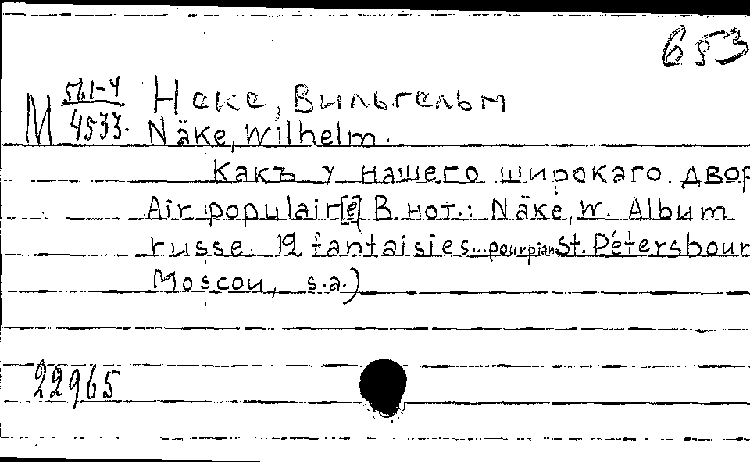 653
М 561-4/4533. Неке, Вильгельм
Näke, Wilhelm.
Какъ у нашего широкаго двор
Air populair[e] В нот.: Näke, W. Album
russe. 12 fantaisies... pour pian St. Pétersbour
Moscou, s.a.)
22965